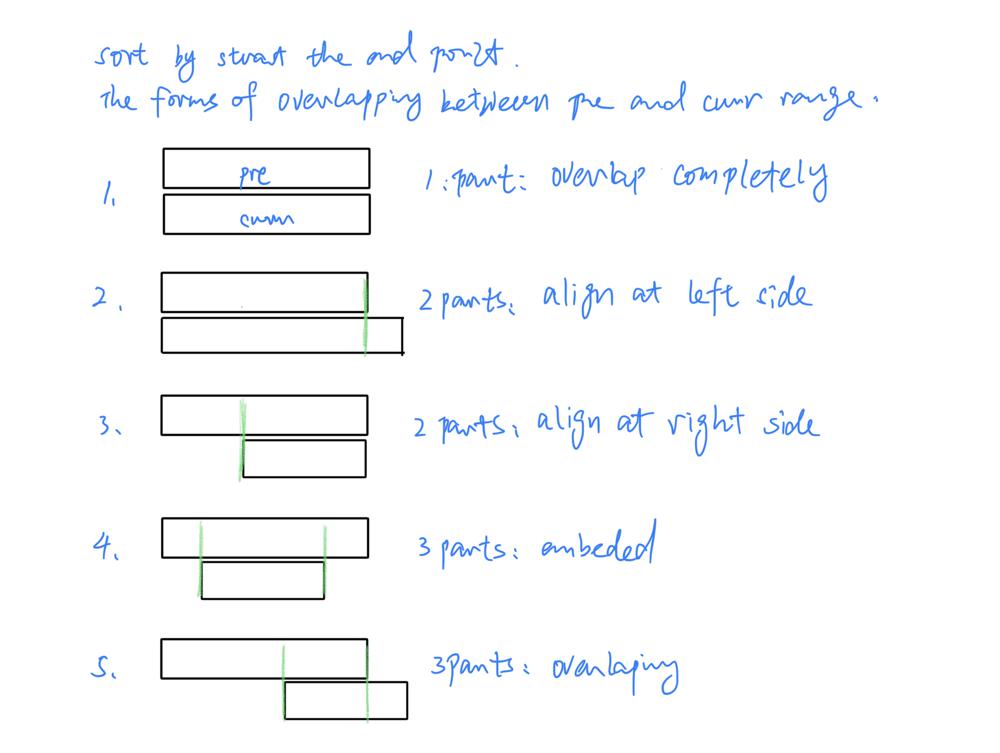 sort by start the end point.
The forms of overlapping between pre and curr range.
1.
pre
curr
1:part: overlap completely
2.
2 parts: align at left side
3.
2 parts: align at right side
4.
3 parts: embeded
5.
3parts: overlaping